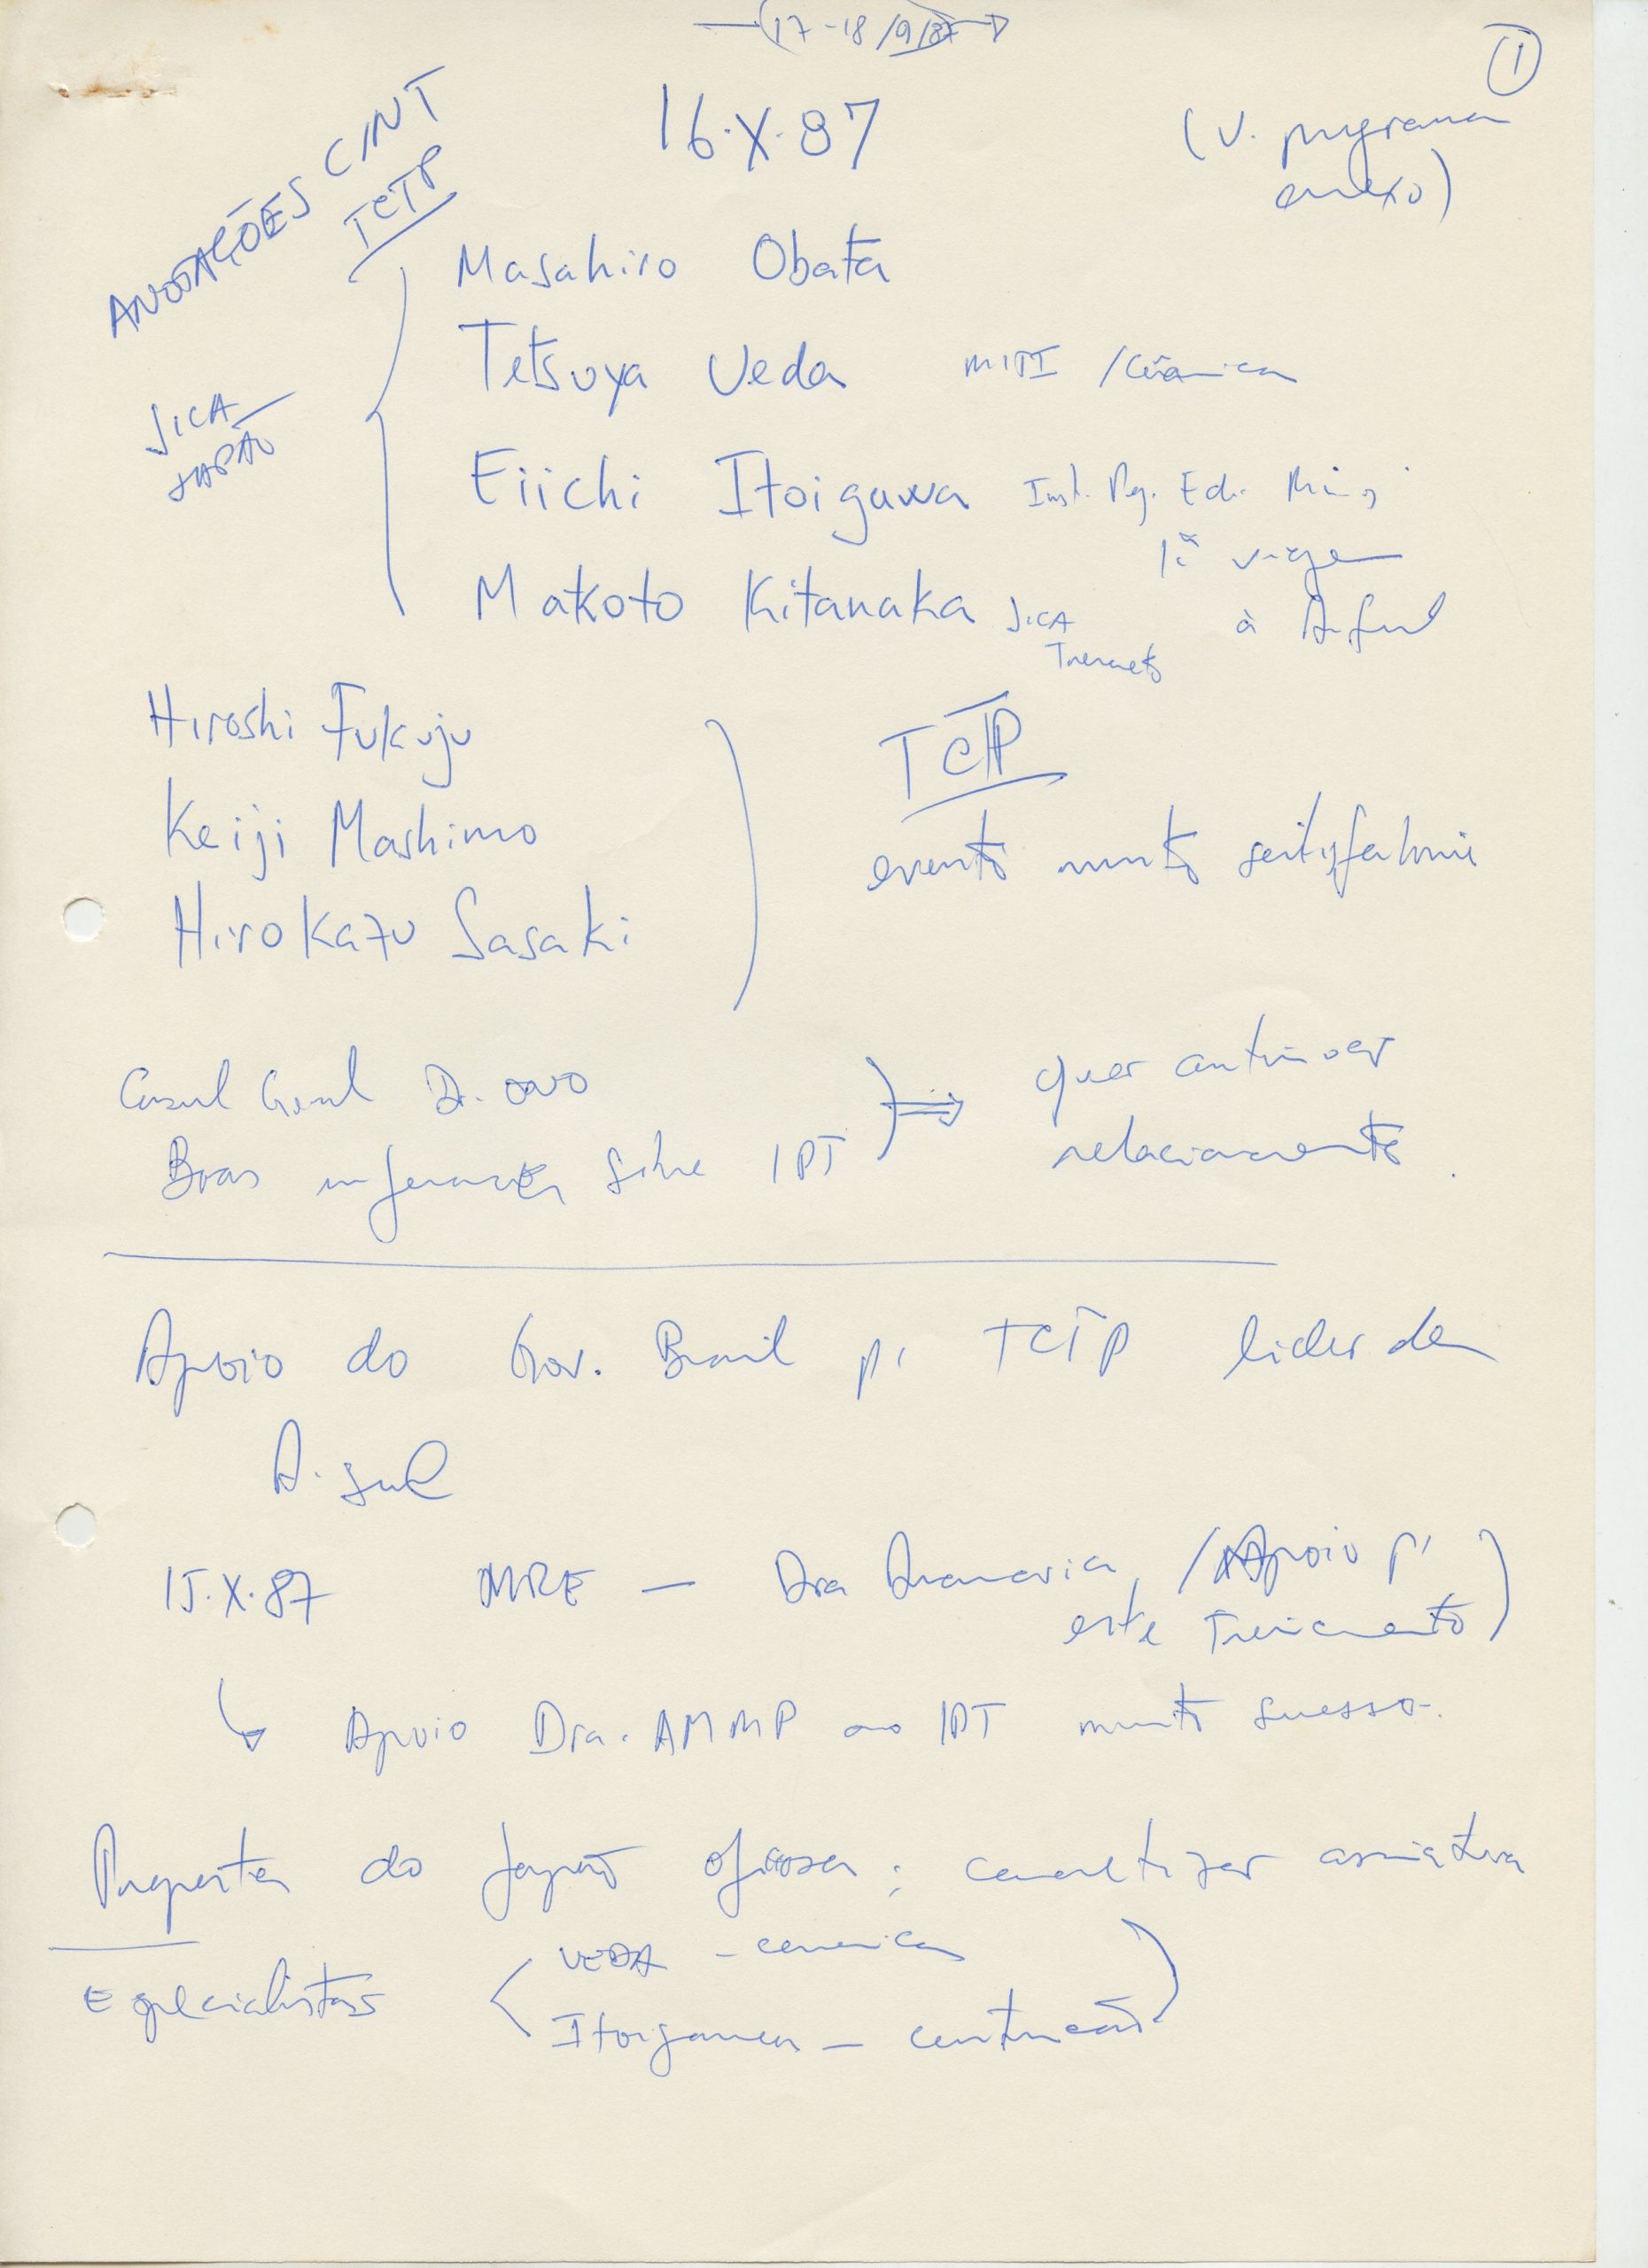 (17-18/9/87)
1
16.X.87
(V. programa
anexo)
ANOTAÇÕES CINT
TCTP
Masahiro Obata
Tetsuya Ueda MITI / Cerâmica
JICA
JAPÃO
Eiichi Itoigawa Inst. Pesq. Ed.
1ª viagem
Makoto Kitanaka JICA à A. Sul
Treinamento
Hiroshi Fukuju
TCTP
Keiji Mashimo
evento muito satisfatório
Hirokazu Sasaki
Consul Geral Dr. ONO quer continuar
Boas informações sobre IPT ⇒ relacionamento.
Apoio do Gov. Brasil p/ TCTP lider da
A. Sul
15.X.87 MRE — Dra Anamaria, / Apoio p/
este Treinamento)
↳ Apoio Dra. AMMP ao IPT muito sucesso.
Proposta do Japão oficiosa; concretizar assinatura
Especialistas < UEDA - ceramica
Itoigawa — construção)